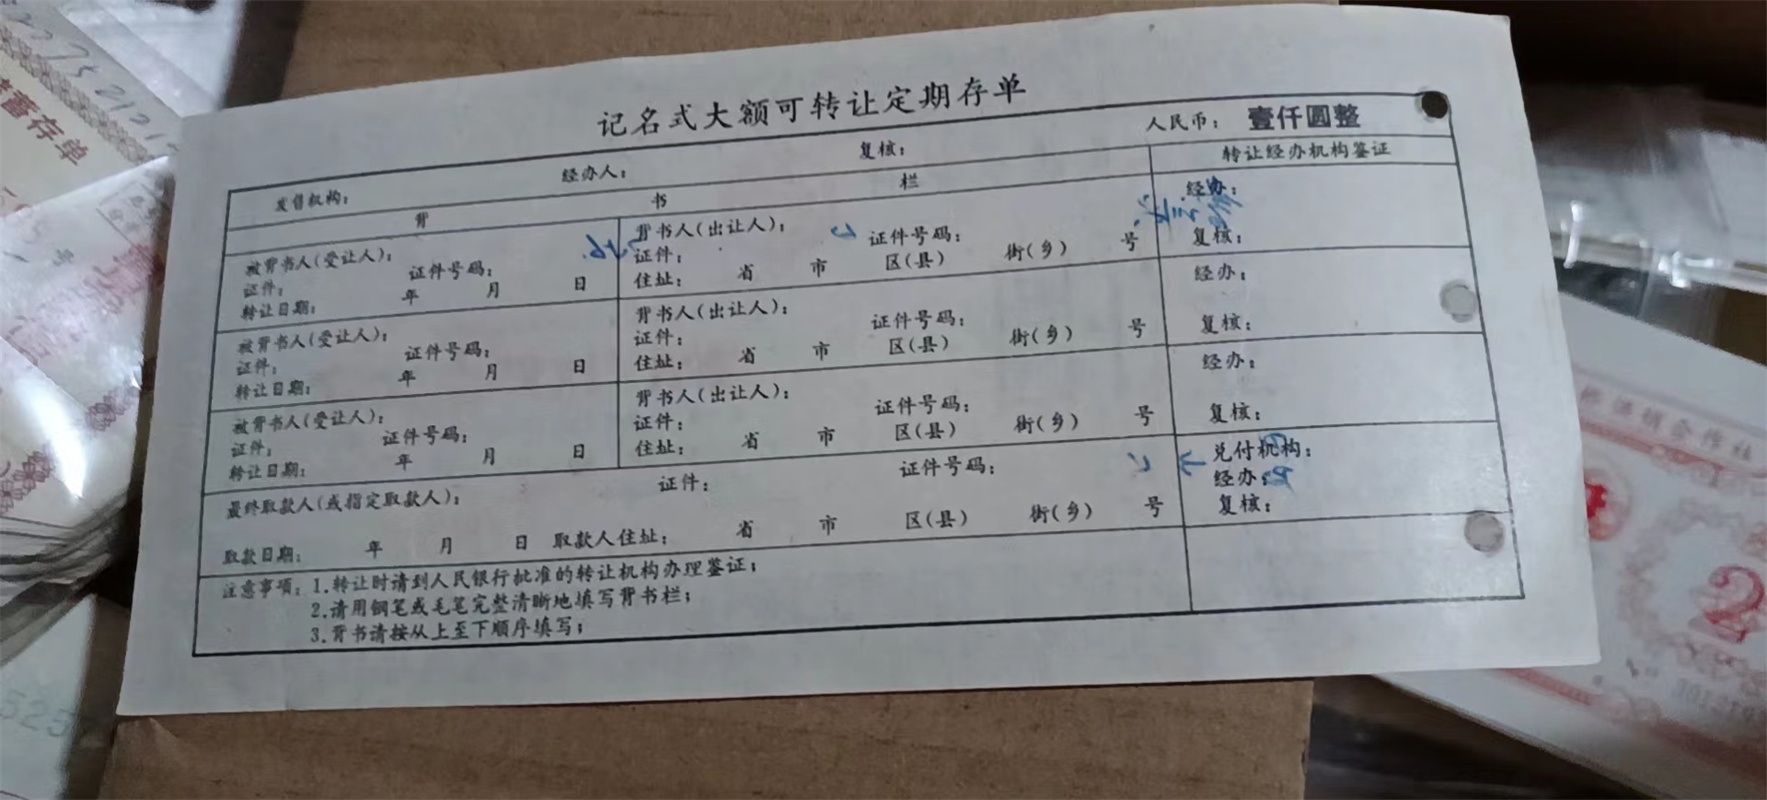 记名式大额可转让定期存单
人民币：壹仟圆整
发售机构： 经办人： 复核： 转让经办机构鉴证
背 书 栏
被背书人(受让人)： 背书人(出让人)： 经办：
证件： 证件号码： 证件： 证件号码： 复核：
转让日期： 年 月 日 住址： 省 市 区(县) 街(乡) 号
被背书人(受让人)： 背书人(出让人)： 经办：
证件： 证件号码： 证件： 证件号码： 复核：
转让日期： 年 月 日 住址： 省 市 区(县) 街(乡) 号
被背书人(受让人)： 背书人(出让人)： 经办：
证件： 证件号码： 证件： 证件号码： 复核：
转让日期： 年 月 日 住址： 省 市 区(县) 街(乡) 号
最终取款人(或指定取款人)： 证件： 证件号码： 兑付机构：
经办：
复核：
取款日期： 年 月 日 取款人住址： 省 市 区(县) 街(乡) 号
注意事项：1.转让时请到人民银行批准的转让机构办理鉴证；
2.请用钢笔或毛笔完整清晰地填写背书栏；
3.背书请按从上至下顺序填写；
蓄存单
供销合作社
2